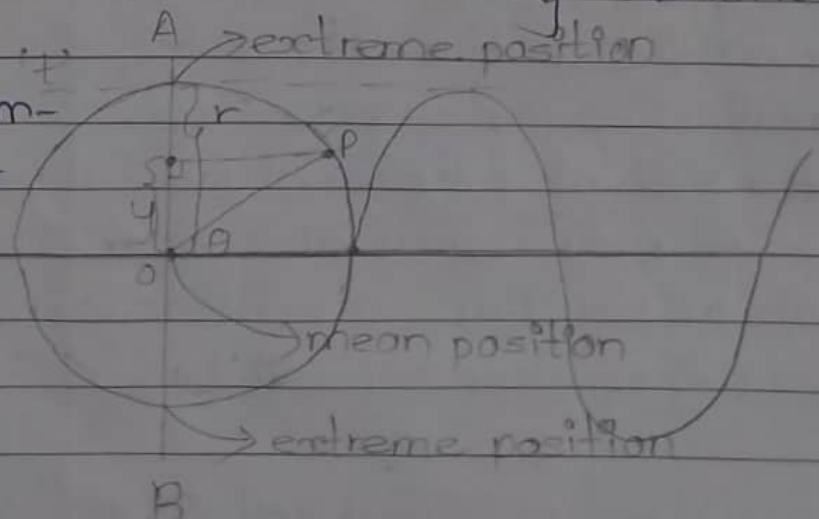 A
extreme position
't'
n-
r
P
S
y
θ
O
mean position
extreme position
B